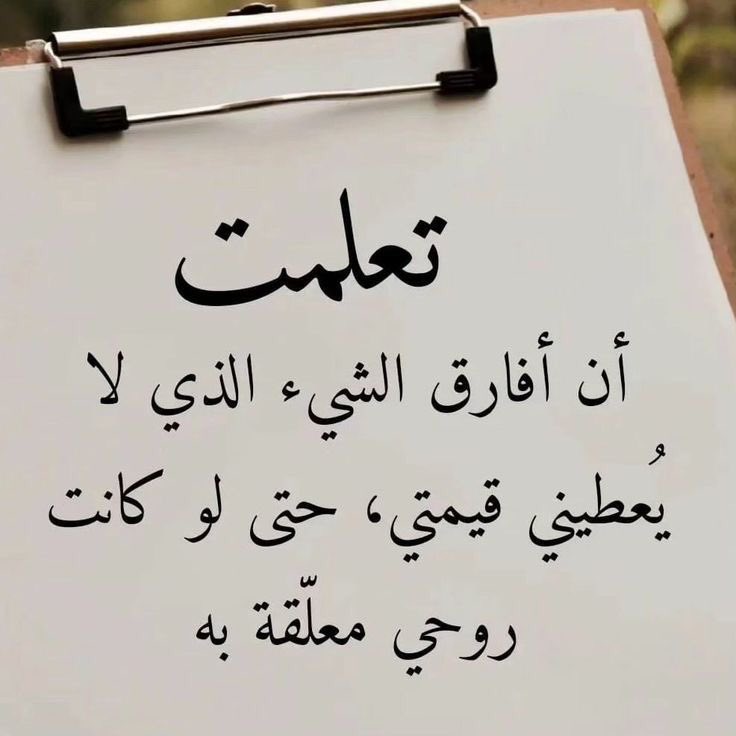 تعلمت
أن أفارق الشيء الذي لا
يُعطيني قيمتي، حتى لو كانت
روحي معلّقة به